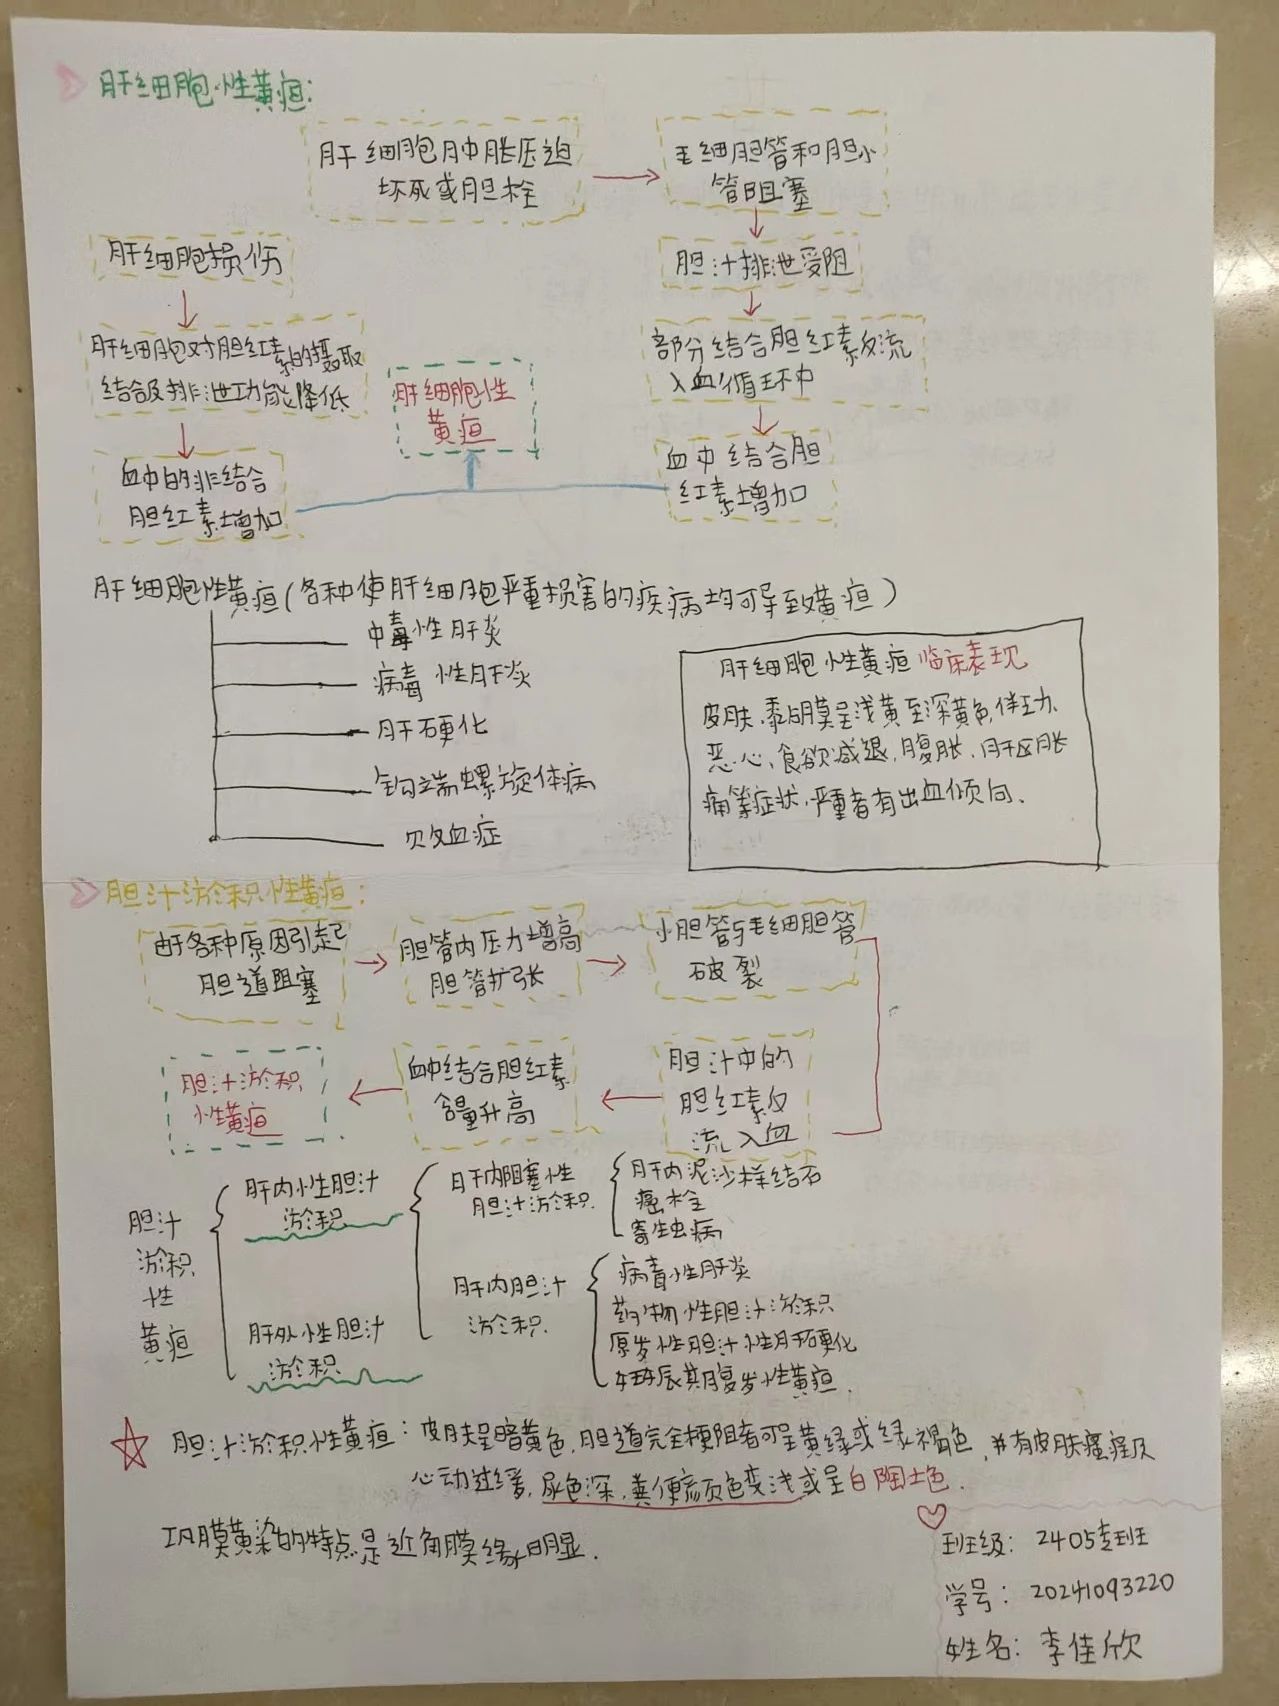 肝细胞性黄疸:
肝细胞肿胀压迫
坏死或胆栓
毛细胆管和胆小
管阻塞
胆汁排泄受阻
部分结合胆红素反流
入血循环中
血中结合胆
红素增加
肝细胞损伤
肝细胞对胆红素的摄取
结合及排泄功能降低
血中的非结合
胆红素增加
肝细胞性
黄疸
肝细胞性黄疸(各种使肝细胞严重损害的疾病均可导致黄疸)
中毒性肝炎
病毒性肝炎
肝硬化
钩端螺旋体病
败血症
肝细胞性黄疸临床表现
皮肤、黏膜呈浅黄至深黄色,伴乏力、
恶心、食欲减退、腹胀、肝区胀
痛等症状,严重者有出血倾向.
胆汁淤积性黄疸:
由于各种原因引起
胆道阻塞
胆管内压力增高
胆管扩张
小胆管与毛细胆管
破裂
胆汁中的
胆红素反
流入血
血中结合胆红素
含量升高
胆汁淤积
性黄疸
胆汁
淤积
性
黄疸
肝内性胆汁
淤积
肝外性胆汁
淤积
肝内阻塞性
胆汁淤积
肝内胆汁
淤积
肝内泥沙样结石
癌栓
寄生虫病
病毒性肝炎
药物性胆汁淤积
原发性胆汁性肝硬化
妊娠期复发性黄疸.
胆汁淤积性黄疸:皮肤呈暗黄色,胆道完全梗阻者可呈黄绿或绿褐色,并有皮肤瘙痒及
心动过缓,尿色深,粪便颜色变浅或呈白陶土色.
巩膜黄染的特点是近角膜缘明显.
班级: 2405专班
学号: 20241093220
姓名: 李佳欣